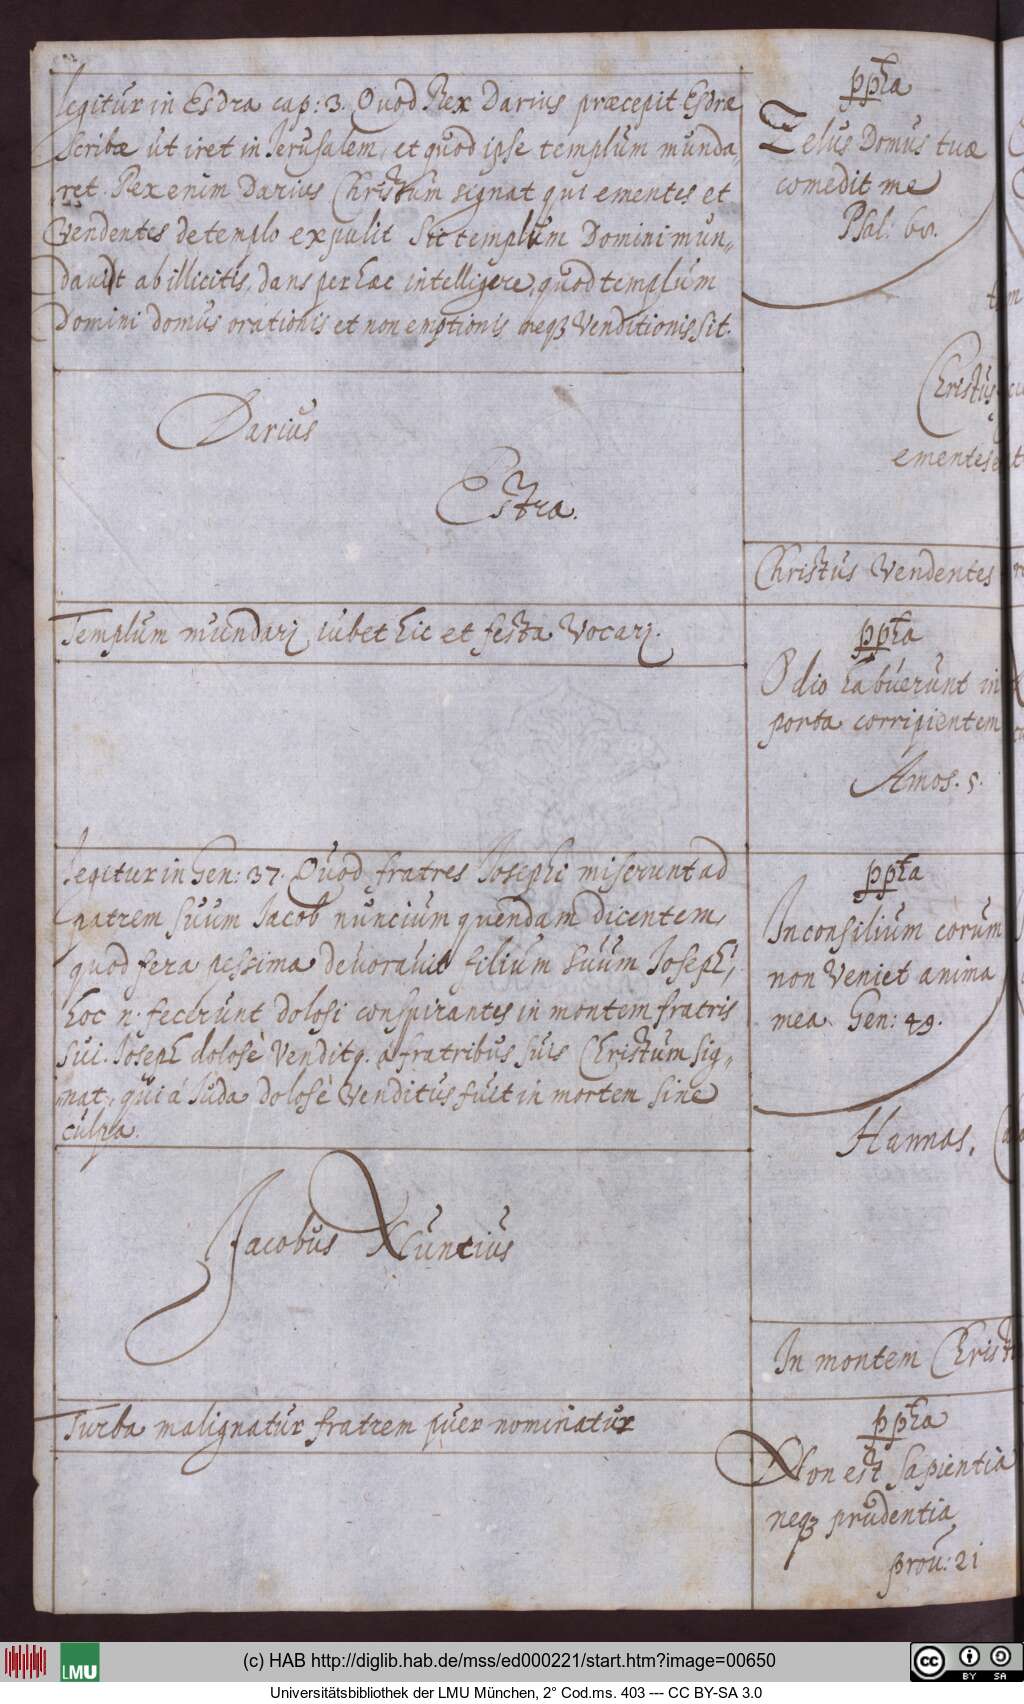 Legitur in Esdra cap: 3. Quod Rex Darius præcepit Esdræ
Scribæ ut iret in Jerusalem, et quod ipse templum munda,
ret. Rex enim Darius Christum signat qui ementes et
Vendentes de templo expulit Sic templum Domini mun„
davit ab illicitis, dans per hæc intelligere, quod templum
Domini domus orationis et non emptionis neqꝫ Venditionis sit.
Darius
Estra.
Templum mundarj iubet hic et festa Vocarj.
Legitur in Gen: 37. Quod fratres Josephi miserunt ad
patrem suum Jacob nuncium quendam dicentem,
quod fera pessima devoravit filium suum Joseph,
hoc n. fecerunt dolosi conspirantes in mortem fratris
sui. Joseph dolosè Venditq. á fratribus suis Christum sig„
nat, qui á Juda dolosè Venditus fuit in mortem sine
culpa.
Jacobus Nuntius
Turba malignatur fratrem puer nominatur
ppħa
Zelus Domus tuæ
comedit me
Psal: 68.
Christus
ementes et
Christus Vendentes
ppħa
Odio habuerunt in
porta corripientem
Amos. 5.
ppħa
In consilium eorum
non Veniet anima
mea Gen: 49.
Hannas,
In mortem Christ
ppħa
Non est sapientia
neqꝫ prudentia
prou: 21
(c) HAB http://diglib.hab.de/mss/ed000221/start.htm?image=00650
LMU
cc BY SA
Universitätsbibliothek der LMU München, 2° Cod.ms. 403 --- CC BY-SA 3.0